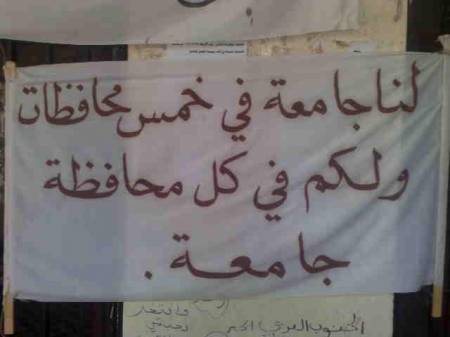 لنا جامعة في خمس محافظات
ولكم في كل محافظة
جامعة .
الجنوب العربي الحر